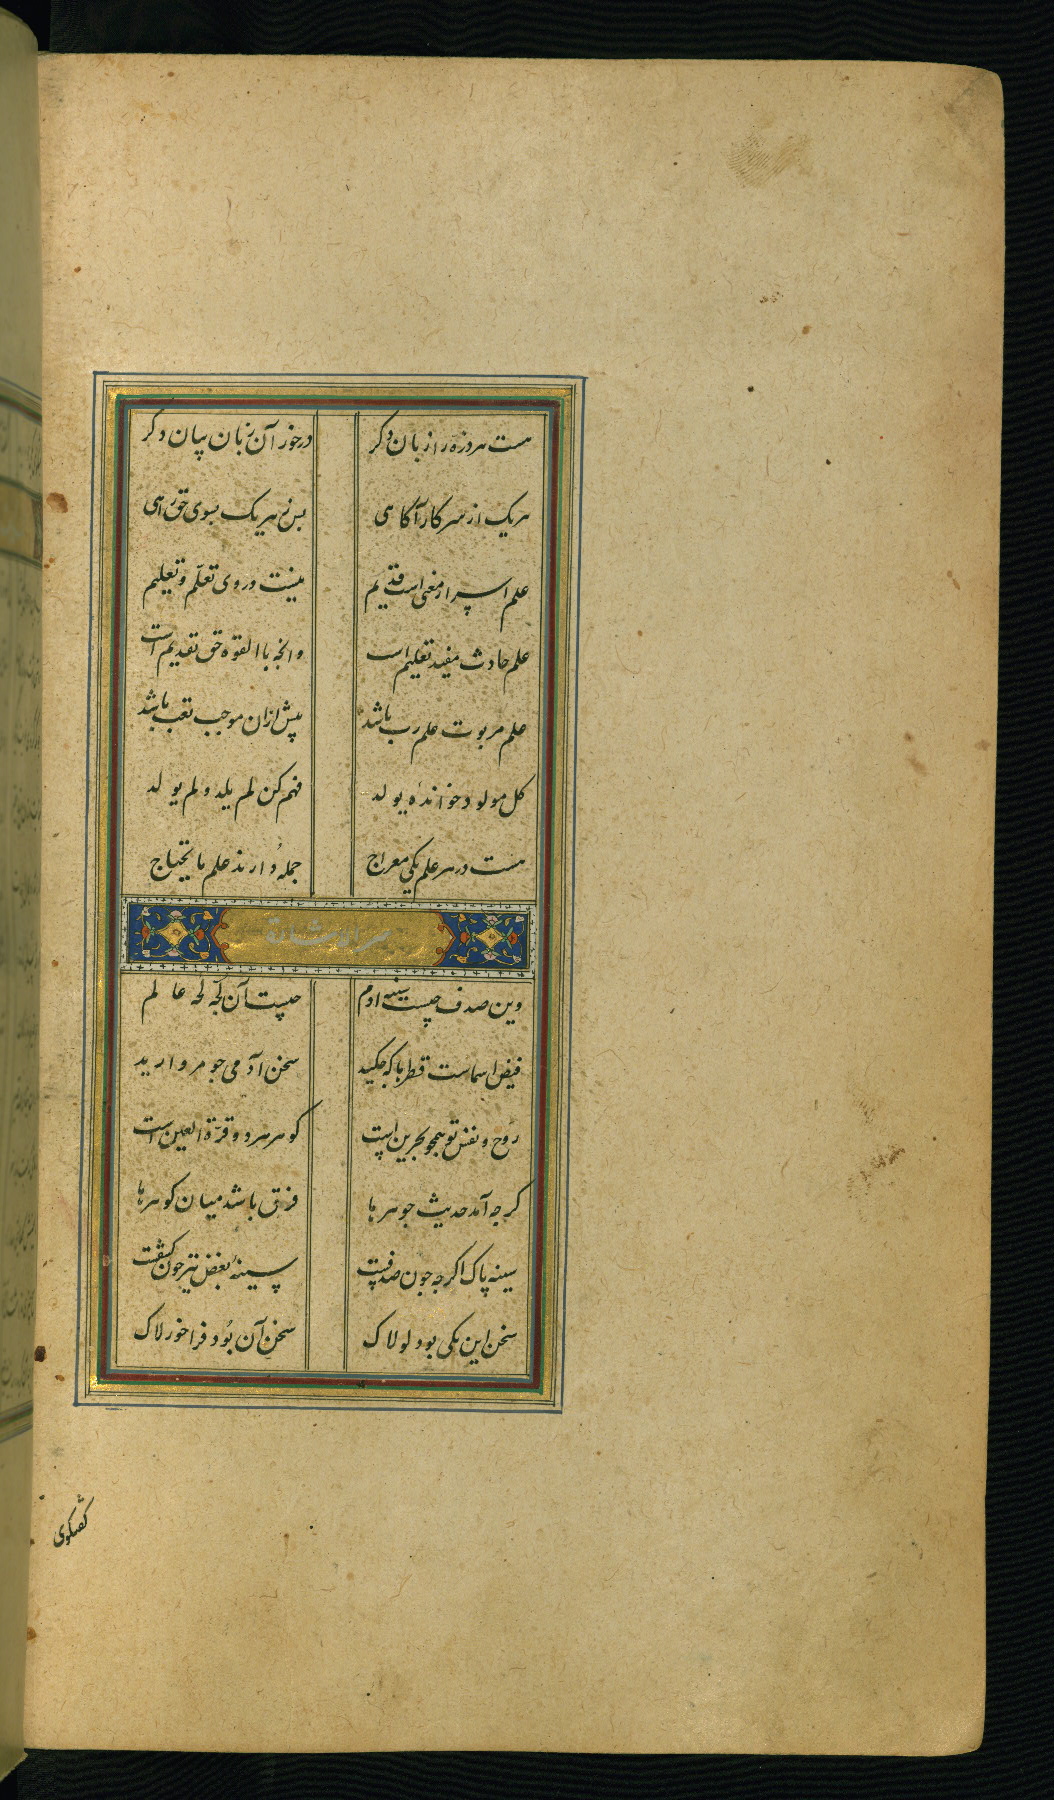 هست هر ذره را زبان دگر درخور آن زبان بیان دگر
هر یک از سر کار آکاهی بس ز هر یک بسوی حق راهی
علم اسرار معنی است قدیم نیست در وی تعلم و تعلیم
علم حادث مفید تعلیم است وانچه باالقوه حق تقدیم است
علم مربوب علم رب باشد پیش ازان موجب تعب باشد
کل مولود خوانده یولد فهم کن لم یلد و لم یولد
هست در هر علم یکی معراج جمله دارند علم ما یحتاج
سر الاشارة
وین صدف چیست سینه ادم چیست آن لجه لجه عالم
فیض اسماست قطرها که چکید سخن آدمی چو مروارید
روح و نفس تو همچو بحرین است کوهر هر دو قرة العین است
کرچه آمد حدیث جوهرها فرق باشد میان کوهرها
سینه پاک اکرچه چون صدفست سینه بغض نیز چون کشفست
سخن این یکی بود لولاک سخن آن بود فراخور لاک
کفتکوی